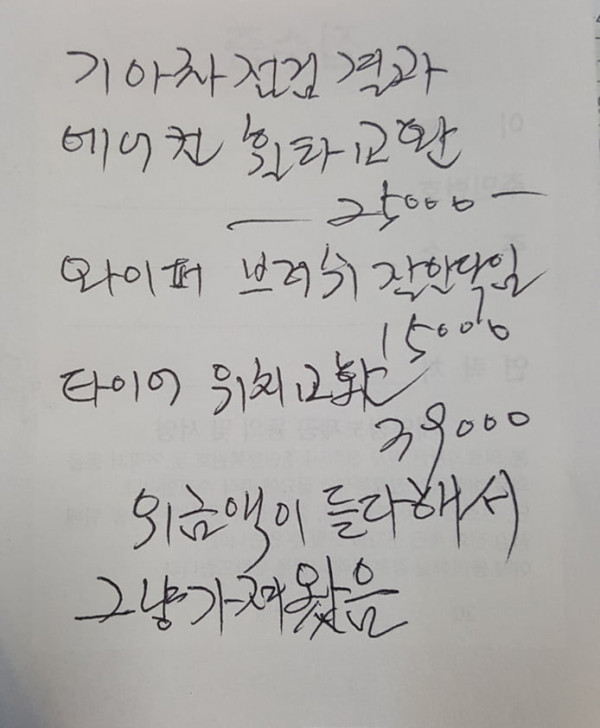 기아차 점검 결과
에어컨 휠타 교환
— 25000 —
와이퍼 브러쉬 잘안닥임
15000
타이어 위치교환
39000
위금액이 든다해서
그냥 가져왔음